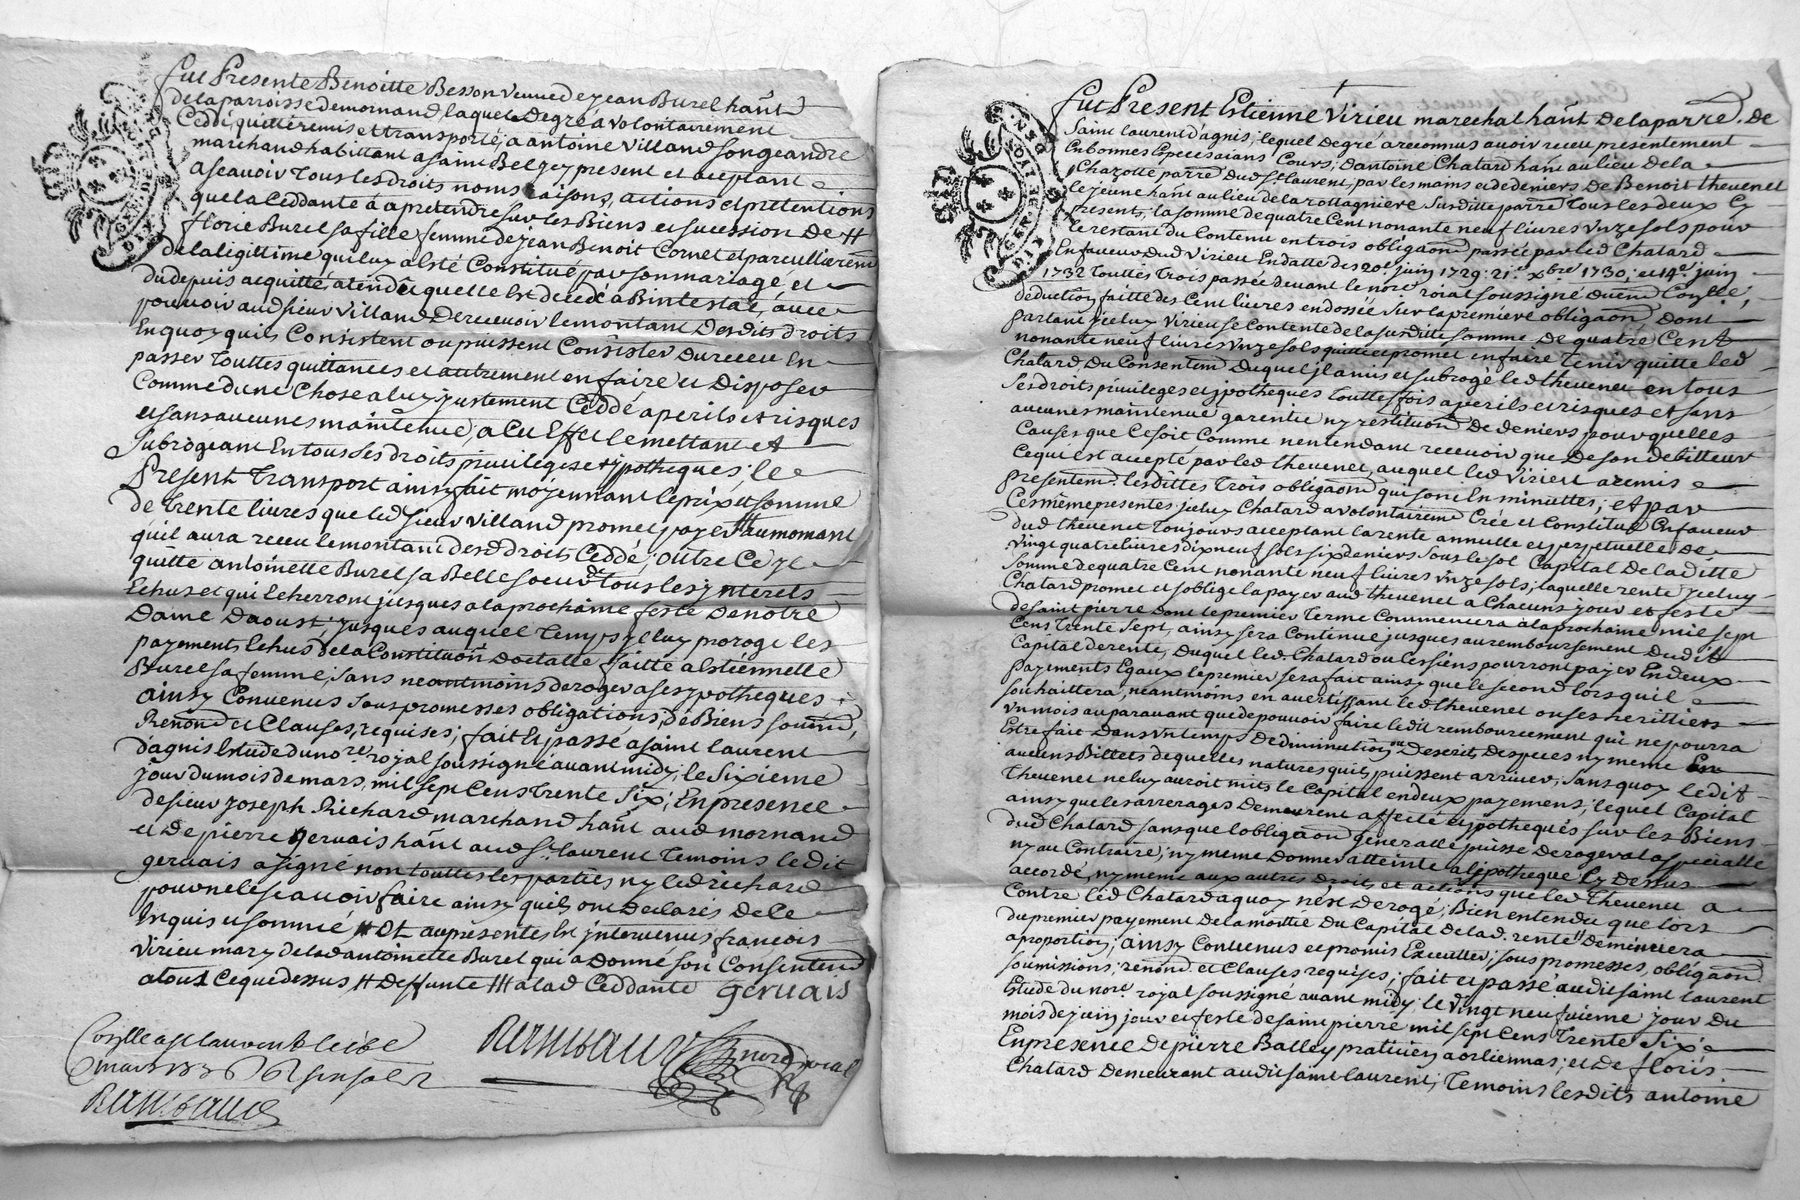 fut Presente Benoitte Besson veuve de jean Burel hãnt
de la parroisse de mornand, laquel de gré a volontairement
Ceddé, quitté remis et transporté, a antoine Villand son geandre
marchand habittant a saint Bel g ey present et aceptant
a scavoir Tous les droits noms raisons, actions et prettentions
que la Ceddante à a prettendre sur les Biens et sucession de #
florie Burel sa fille femme de jean Benoit Cornet et particullierem
de la legittime qui luy a esté Constitué par son mariage et
du depuis acquitté, atendu quelle est decedé ab intestat, avec
pouvoir aud sieur Villand de recevoir le montant desdits droits
En quoy quils Consistent ou puissent Consister du receu En
passer Touttes quittances et autrement en faire et Disposer
Comme d'une Chose a luy justement Ceddé a perils et risques
et sans aucunes maintenue, a Cet Effet le mettant et
subrogeant En tous ses droits privileges et ypotheques; le
Present Transport ainsy fait moyennant le prix et somme
de Trente livres que led sieur Villand promet payer ## au momant
quil aura receu le montant desd droits Ceddé; outre Ce yl
quitte antoinette Burel sa Belle soeur de tous les ynterets
Echus et qui Echerront jusques a la prochaine feste de notre
Dame Daoust jusques auquel Temps yl luy proroge les
payements Echus de la Constitution dotalle faitte a Estiennette
Burel sa femme, sans neantmoins deroger a ses ypotheques
ainsy Convenus sous promesses obligations, de Biens soumõns,
Renond et Clauses, requises; fait et passé a saint laurent
d'agnis Estude du nore. royal soussigné avant midy, le sixieme
jour du mois de mars, mil sept Cens Trente six; En presence
de sieur joseph Richard marchand hãnt aud mornand
et de pierre gervais hãnt aud St. laurent Temoins ledit
gervais a signé non touttes les parties ny led richard
pour ne le scavoir faire ainsy quils ont declarés de Ce
Enquis et sommé # et aux présentes Est yntervenus francois
Virieu mary de lad antoinette Burel qui a donné son Consentend
a tout Ce que dessus # deffunte ### a lad Ceddante gervais
nore royal
fut Present Estienne Virieu marechal hãnt de la parre. de
saint laurent d'agnis; lequel de gré a reconnus avoir receu presentement
En bonnes Especes aians Cours; d'antoine Chatard hãnt au lieu de la
Chazotte parre dud St laurent, par les mains et de deniers de Benoit thevenet
le jeune hãnt au lieu de la rottagniere susditte parre Tous les deux Cy
presents, la somme de quatre Cent nonante neuf livres unze sols pour
le restant du Contenu en trois obligaõns passée par led Chatard
En faveur dud Virieu En datte des 20e. juin 1729. 21e. xbre 1730; et 14e. juin
1732 touttes Trois passée devant le nore roial soussigné duem Coñllé;
deduction faitte des Cent livres endossée sur la premiere obligaõn, dont
partant yceluy Virieu se Contente de la susditte somme de quatre Cent
nonante neuf livres unze sols quitte et promet en faire Tenir quitte led
Chatard, du Consentem duquel jl a mis et subrogé led thevenet en tous
ses droits privileges et ypotheques Toutte fois a perils et risques et sans
aucunes maintenue garentie ny restitution de deniers, pour quelles
Causes que Ce soit Comme n'entendant recevoir que de son debitteur
Ce qui est accepté par led thevenet, auquel led Virieu a remis
presentem. lesdittes Trois obligaõns qui sont En minuttes; et par
Ces même presentes yceluy Chatard a volontairem Créé et Constitué En faveur
dud thevenet Toujours acceptant la rente annuelle et perpetuelle de
vingt quatre livres dix neuf sols six deniers sous le sol Capital de laditte
somme de quatre Cent nonante neuf livres unze sols; laquelle rente yceluy
Chatard promet et s'oblige la payer aud thevenet a Chacuns jour et feste
de saint pierre dont le premier Terme Commencera a la prochaine mil sept
Cens Trente sept, ainsy sera Continué jusques au remboursement dudit
Capital de rente, duquel led. Chatard ou les siens pourront payer En deux
payements Egaux le premier sera fait ainsy que le second lorsqu'il
souhaittera, neantmoins en avertissant led thevenet ou ses heritiers
un mois auparavant que de pouvoir faire ledit remboursement qui ne pourra
Estre fait dans un temps de diminution ny descrits despeces ny meme En
aucuns Billets de quelles natures quils puissent arriver; sans quoy ledit
Thevenet ne luy auroit mits le Capital en deux payemens; lequel Capital
ainsy que les arrerages demeurent affecté et ypothequés sur les Biens
dud Chatard sans que l'obligaõn generalle puisse deroger a la specialle
ny au Contraire; ny meme donner atteinte a l'ypotheque Cy dessus
accordé, ny meme aux autres droits et actions que led Thevenet a
Contre led Chatard a quoy n'est derogé; Bien entendu que lors
du premier payement de la moittié du Capital de lad. rente # deminuera
a proportion; ainsy Convenus et promis Executter, sous promesses, obligaõn
soumissions, renond. et Clauses requises; fait et passé audit saint laurent
Estude du nore. royal soussigné avant midy; le vingt neufvieme jour du
mois de juin jour et feste de saint pierre mil sept Cens Trente six
En presence de pierre Balley praticien a orliennas; et de floris
Chatard demeurant audit saint laurent, Temoins lesdits antoine